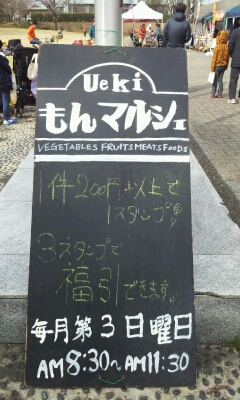 Ueki
もんマルシェ
VEGETABLES FRUITS MEATS FOODS
1件200円以上で
1スタンプ!!
3スタンプで
福引できます。
毎月第3日曜日
AM8:30〜AM11:30